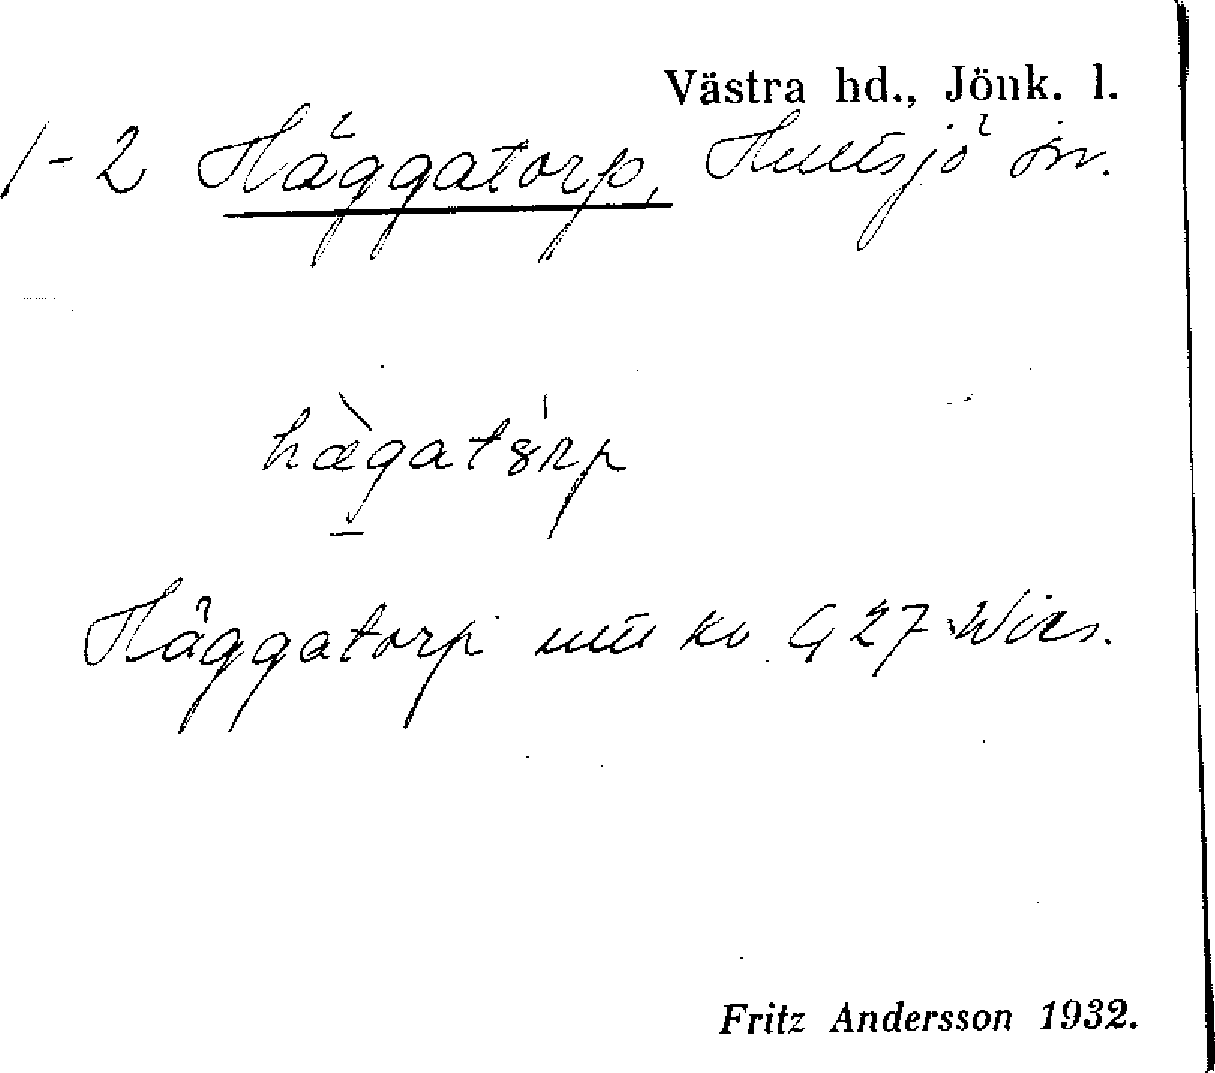 Västra hd., Jönk. l.
1-2 Häggatorp, Hultsjö sn.
hægatorp
Häggatorp G 27
Fritz Andersson 1932.